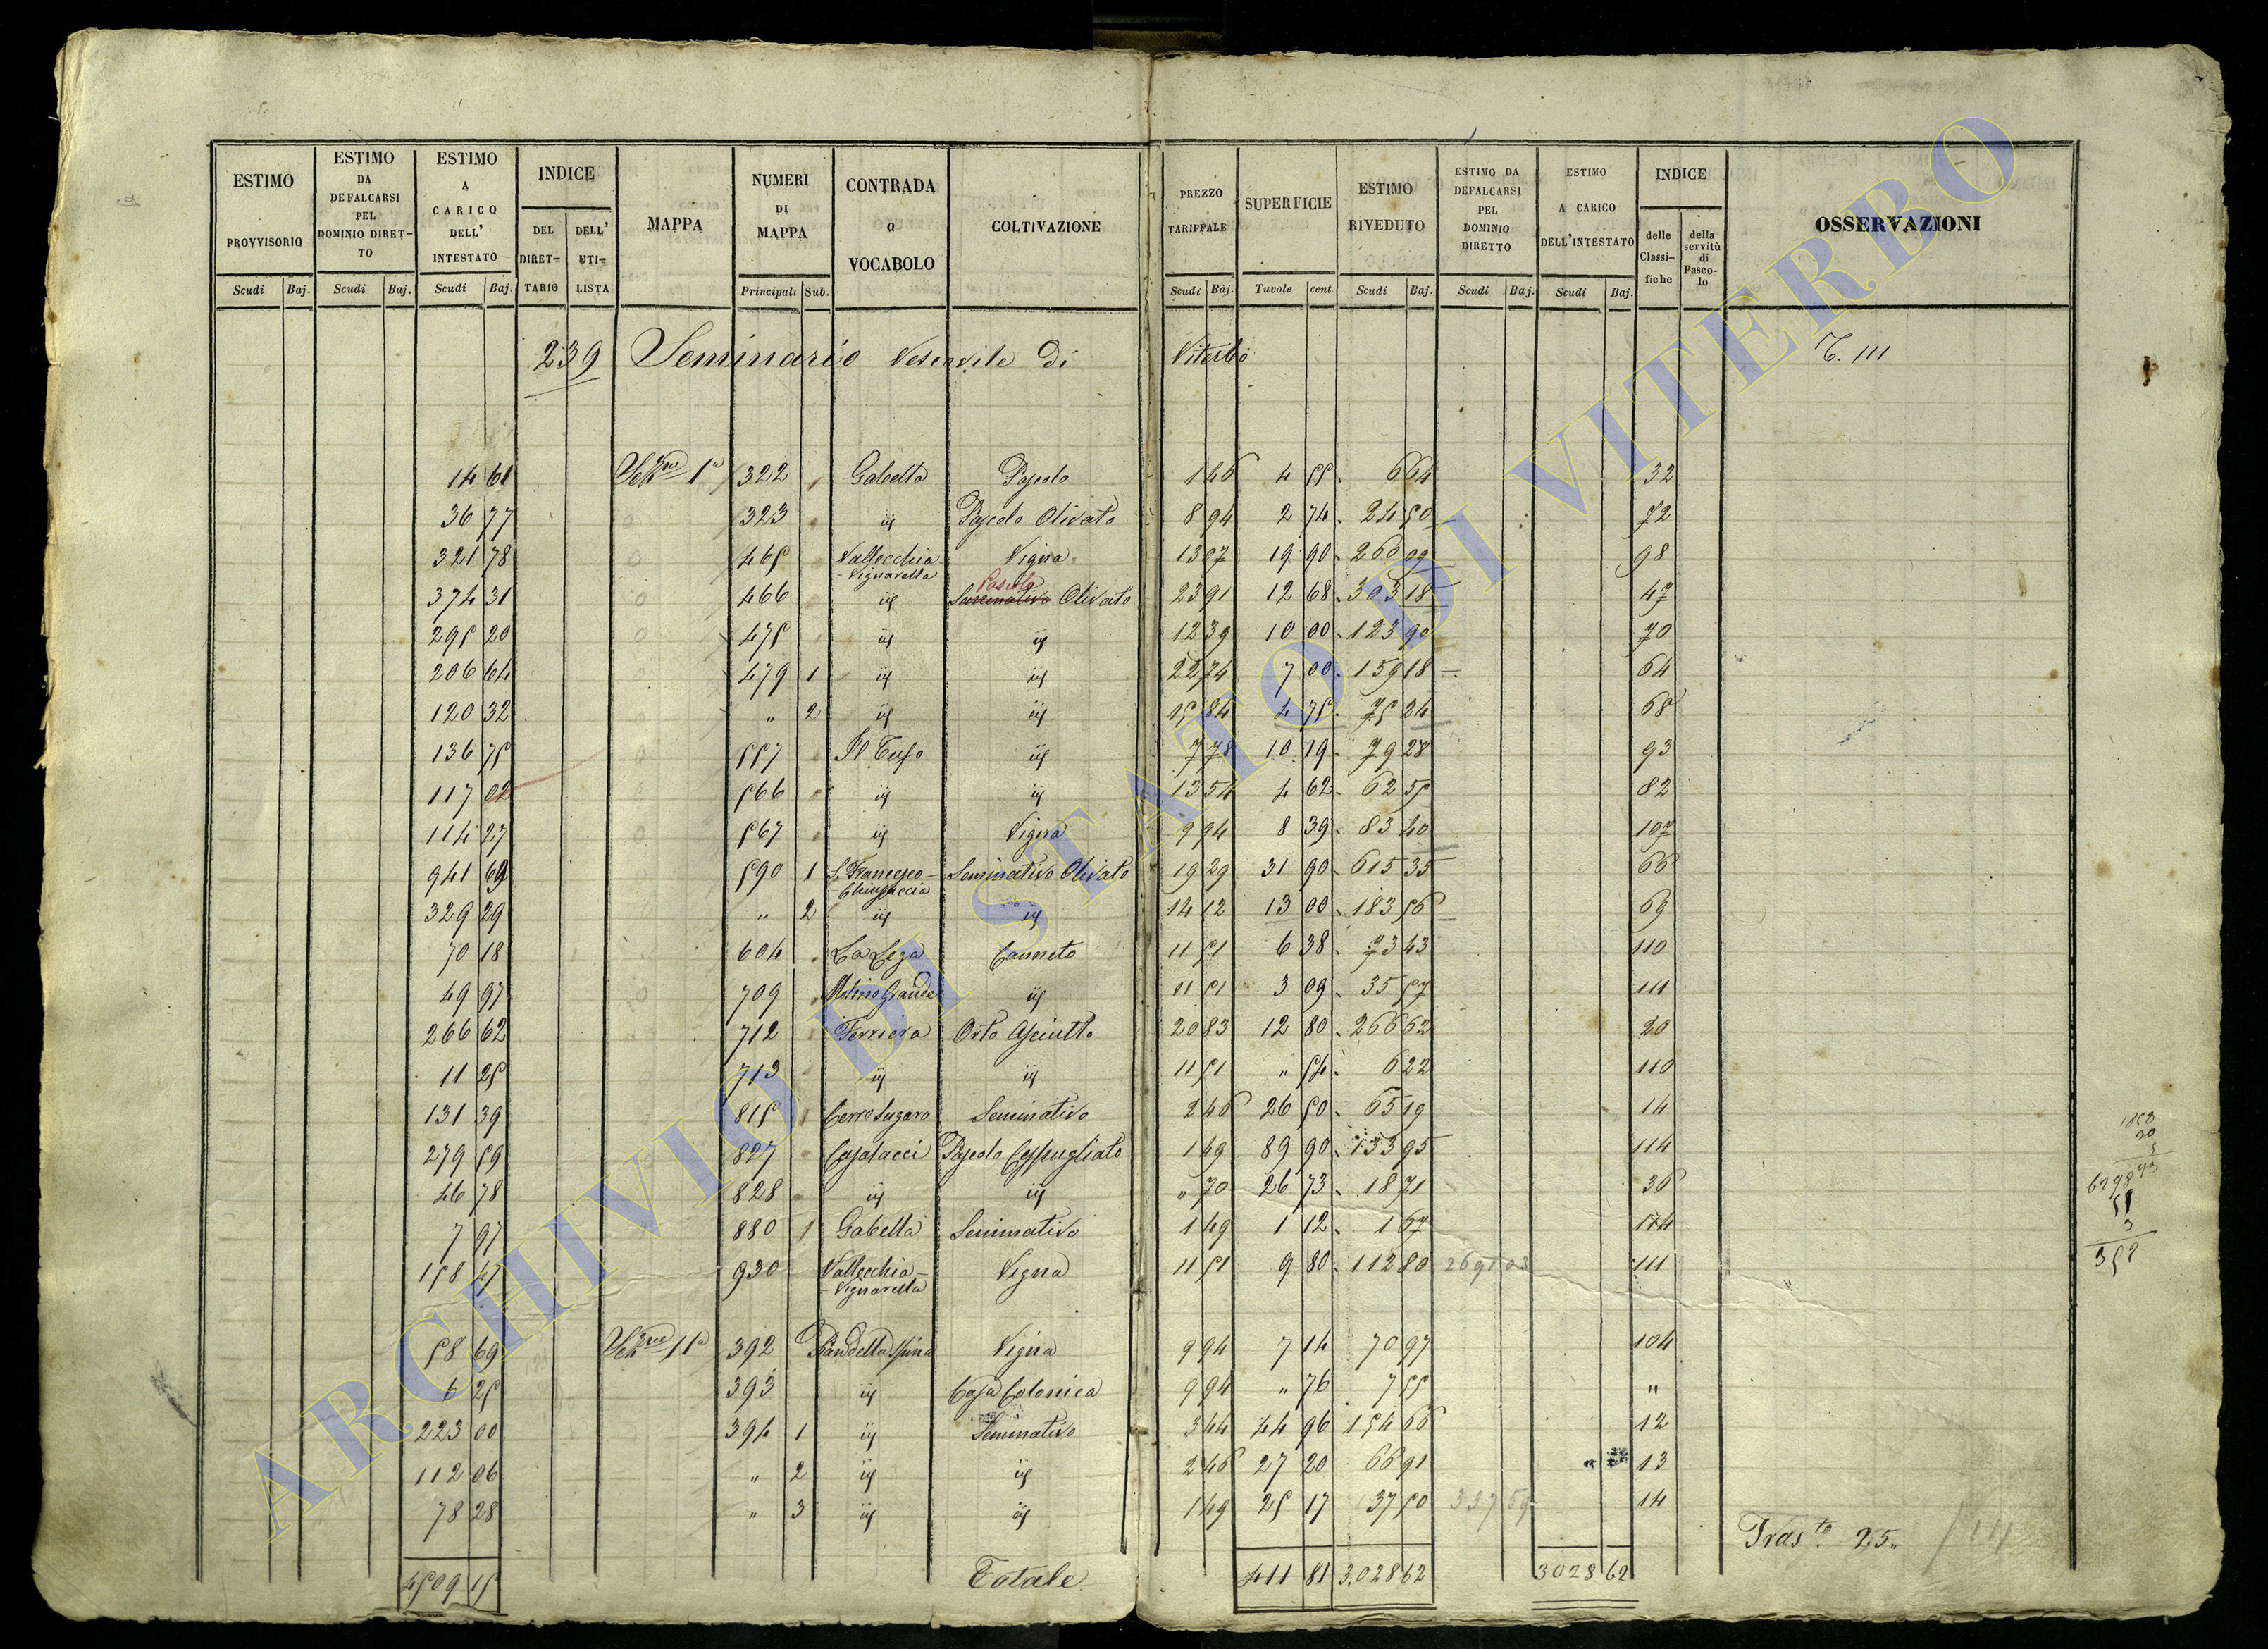 ESTIMO PROVVISORIO | ESTIMO DA DEFALCARSI PEL DOMINIO DIRETTO | ESTIMO A CARICO DELL' INTESTATO | INDICE DEL DIRETTARIO | DELL' UTILISTA | MAPPA | NUMERI DI MAPPA | CONTRADA o VOCABOLO | COLTIVAZIONE | PREZZO TARIFFALE | SUPERFICIE | ESTIMO RIVEDUTO | ESTIMO DA DEFALCARSI PEL DOMINIO DIRETTO | ESTIMO A CARICO DELL'INTESTATO | INDICE delle Classifiche | della servitù di Pascolo | OSSERVAZIONI
Scudi Baj. Scudi Baj. Scudi Baj. Principali Sub. Scudi Baj. Tavole cent. Scudi Baj. Scudi Baj. Scudi Baj.
239 Seminario Vescovile di Viterbo T. 111
14 61 Sez.ne 1a 322 Gabella Pascolo 1 46 4 55 6 64 32
36 77 323 id Pascolo Olivato 8 94 2 74 24 50 72
321 78 465 Vallecchia Vignarella Vigna 13 07 19 90 260 09 98
374 31 466 id Seminativo Pascolo Olivato 23 91 12 68 303 18 47
295 20 475 id id 12 39 10 00 123 90 70
206 64 479 1 id id 22 74 7 00 159 18 64
120 32 " 2 id id 15 84 4 75 75 24 68
136 75 557 Il Tufo id 7 78 10 19 79 28 93
117 02 566 id id 13 54 4 62 62 55 82
114 27 567 id Vigna 9 94 8 39 83 40 107
941 69 590 1 S. Francesco Chiusaccia Seminativo Olivato 19 29 31 90 615 35 66
329 29 " 2 id id 14 12 13 00 183 56 69
70 18 604 La Lega Canneto 11 51 6 38 73 43 110
49 97 709 Molino Grande id 11 51 3 09 35 57 111
266 62 712 Ferriera Orto Asciutto 20 83 12 80 266 62 20
11 25 713 id id 11 51 " 54 6 22 110
131 39 815 Cerro Sugaro Seminativo 2 46 26 50 65 19 14
279 59 827 Casalacci Pascolo Cespugliato 1 49 89 90 133 95 114
46 78 828 id id " 70 26 73 18 71 36
7 97 880 1 Gabella Seminativo 1 49 1 12 1 67 114
158 47 930 Vallecchia Vignarella Vigna 11 51 9 80 112 80 2691 03 111
58 69 Sez.ne 11a 392 Pian della Spina Vigna 9 94 7 14 70 97 104
6 25 393 id Casa Colonica 9 94 " 76 7 55 "
223 00 394 1 id Seminativo 3 44 44 96 154 66 12
112 06 " 2 id id 2 46 27 20 66 91 13
78 28 " 3 id id 1 49 25 17 37 50 337 59 14
Tras.to 25.
4509 15 Totale 411 81 3,028 62 3028 62
ARCHIVIO DI STATO DI VITERBO